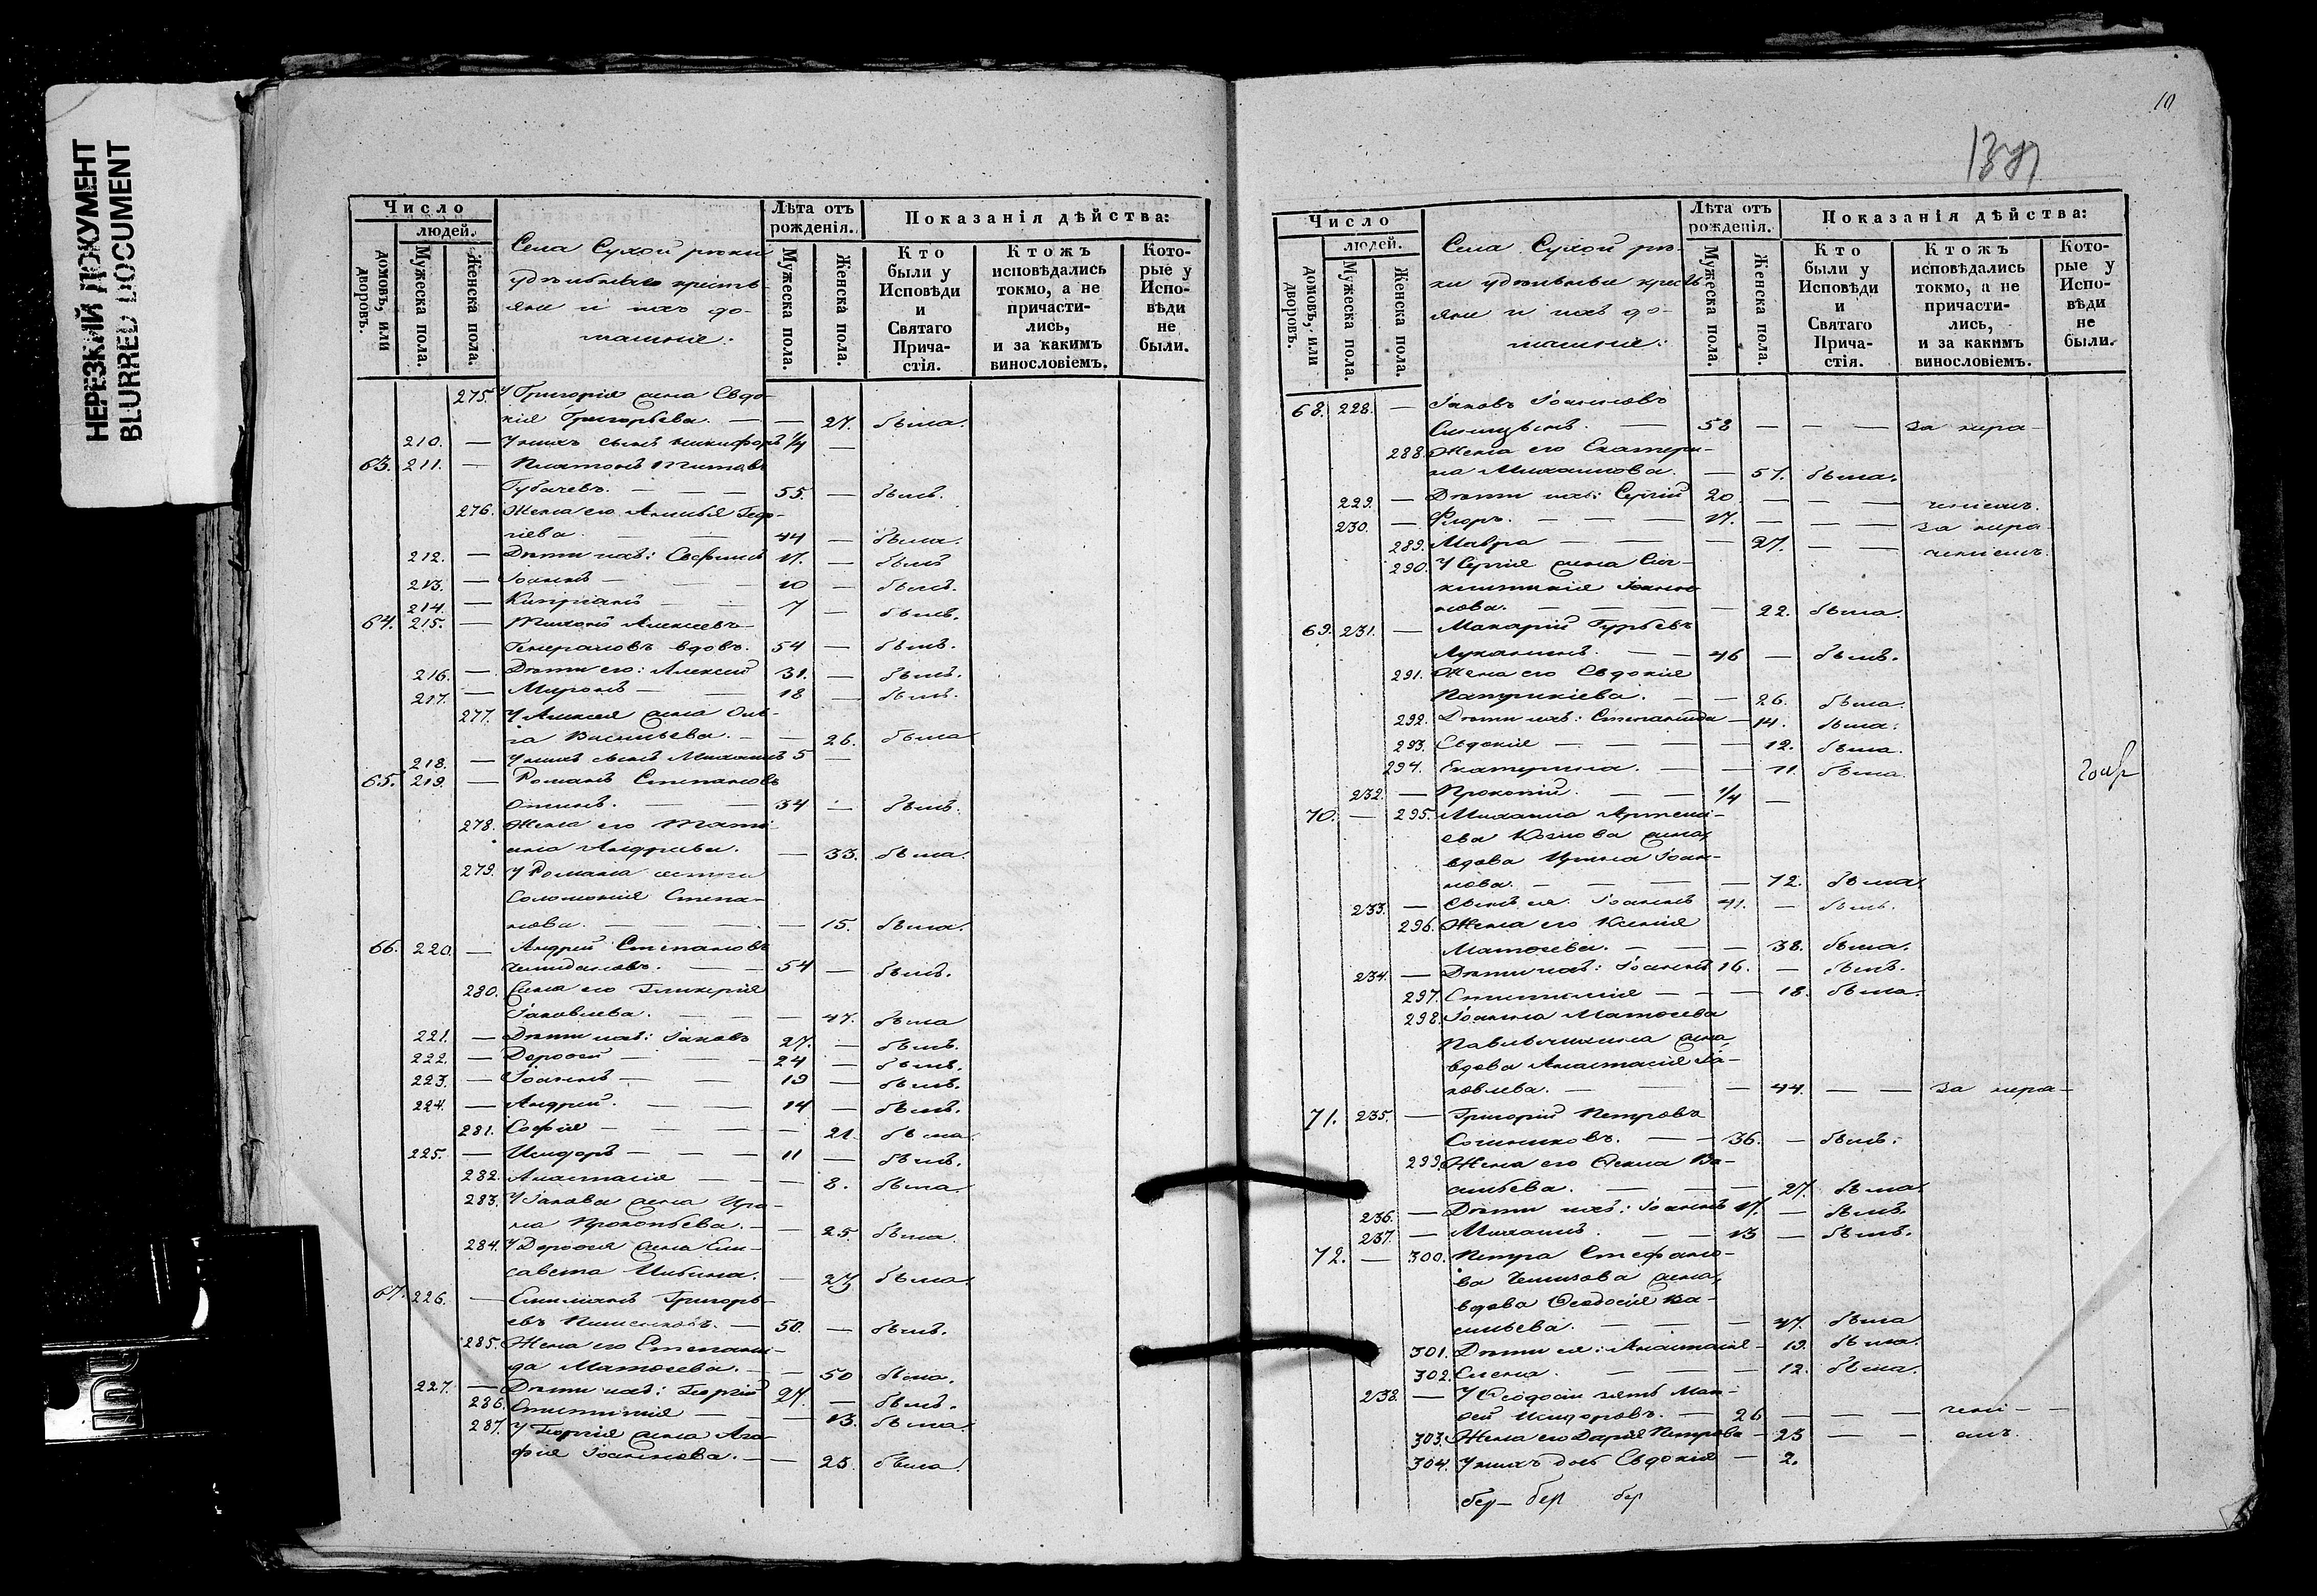 НЕРЕЗКИЙ ДОКУМЕНТ
BLURRED DOCUMENT
Число
людей.
домовъ, или дворовъ.
Мужеска пола.
Женска пола.
Села Сухой рѣки
удѣльные крестъ-
яне и ихъ до-
машніе:
Лѣта отъ рожденія.
Мужеска пола.
Женска пола.
Показанія дѣйства:
Кто были у Исповѣди и Святаго Прича-стія.
Ктожъ исповѣдались токмо, а не причасти-лись, и за какимъ винословіемъ.
Кото-рые у Испо-вѣди не были.
275. У Григорія жена Евдо-
кія Григорьева. — — 27. была.
210. — У нихъ сынъ Никифоръ 1/4 —
63. 211. — Платонъ Титовъ
Губачевъ. — — — 55. — былъ.
276. Жена его
44 — была.
212. — Дѣти ихъ: 17. — былъ
213. — Іоаннъ — 10 — былъ.
214. — Кипріанъ — — 7 — былъ.
64. 215. — Тихонъ Алексѣевъ
Генераловъ вдовъ. 54 — былъ.
216. — Дѣти его: Алексѣй 31. — былъ.
217. — Миронъ — — 18 — былъ.
277. У Алексѣя жена Оль-
га Васильева. — — 26. была
218. — У нихъ сынъ Михаилъ 5 —
65. 219. — Романъ Степановъ
— — 34 — былъ.
278. Жена его Тати-
ана Андреева. — 33. была.
279. У Романа сестра
Соломонія Степа-
нова. — — — — 15. была.
66. 220. — Андрей Степановъ
Чемодановъ. — — 54 — былъ.
280. Жена его Гликерія
Іаковлева. — — — 47. была
221. — Дѣти ихъ: Іаковъ 27. — былъ.
222. — Дороѳей — — 24 — былъ.
223. — Іоаннъ — — 19 — былъ.
224. — Андрей. — — 14 — былъ.
281. Софія — — — — 21. была.
225. — Исидоръ — — — 11 — былъ.
282. Анастасія — — — 8. была.
283. У Іакова жена Ири-
на Прокопьева. — — 25. была
284. У Дороѳея жена Ели-
савета — 23 была.
67. 226. — Емиліанъ Григорь-
евъ — 50. — былъ.
285. Жена его Степани-
да Матѳеева. — — 50 была.
227. — Дѣти ихъ: Георгій 27. — былъ.
286. — — 13. была.
287. У Георгія жена Ага-
фія Іоаннова. — — 25. была.
10
Число
людей.
домовъ, или дворовъ.
Мужеска пола.
Женска пола.
Села Сухой рѣ-
ки удѣльные крестъ-
яне и ихъ до-
машніе:
Лѣта отъ рожденія.
Мужеска пола.
Женска пола.
Показанія дѣйства:
Кто были у Исповѣди и Святаго Прича-стія.
Ктожъ исповѣдались токмо, а не причасти-лись, и за какимъ винословіемъ.
Кото-рые у Испо-вѣди не были.
68. 228. — Іаковъ Іоанновъ
Синицынъ. — 58 — — — за нера-
288. Жена его Екатери-
на Михаилова. — 57. была.
229. — Дѣти ихъ: Сергій 20 — — — ченіемъ.
230. — Флоръ. — — — 17. — — — за нера-
289. Мавра — — — — 27. — — ченіемъ.
290. У Сергія жена Син-
клитикія Іоан-
нова. — — — — 22. была.
69. 231. — Макарій Гурьевъ
Луканинъ. — — 46 — былъ.
291. Жена его Евдокія
Патрикіева. — — 26. была.
292. Дѣти ихъ: Степанида — 14. была.
293. Евдокія — — — — 12. была.
294. Екатерина. — — 11. была.
232. — Прокопій. — — 1/4 —
70. — 295. Михаила Артемі-
ева жена,
вдова Ирина Іоан-
нова. — — — — 72. была.
233. — Сынъ ея Іоаннъ 41. — былъ.
296. Жена его Ксенія
Матѳеева. — — — 38. была.
234. — Дѣти ихъ: Іоаннъ 16. — былъ.
297. — — — 18. была.
298. Іоанна Матѳеева
жена
вдова Анастасія Іа-
ковлева. — — — — 44. — — за нера-
71. 235. — Григорій Петровъ
— — 36. — былъ.
299. Жена его Ѳекла Ва-
сильева. — — — 27. была.
236. — Дѣти ихъ: Іоаннъ 17. — былъ.
237. — Михаилъ. — — 13 — былъ.
72. — 300. Петра Стефано-
ва жена,
вдова Ѳеодосія Ва-
сильева. — — — 47. была
301. Дѣти ея: Анастасія — 19. была.
302. Елена. — — — — 12. была.
238. — У Ѳеодосіи зять
Исидоровъ. — 26 — — — чені-
303. Жена его Дарія Петрова — 23 — — емъ.
304. У нихъ дочь Евдокія — 2.